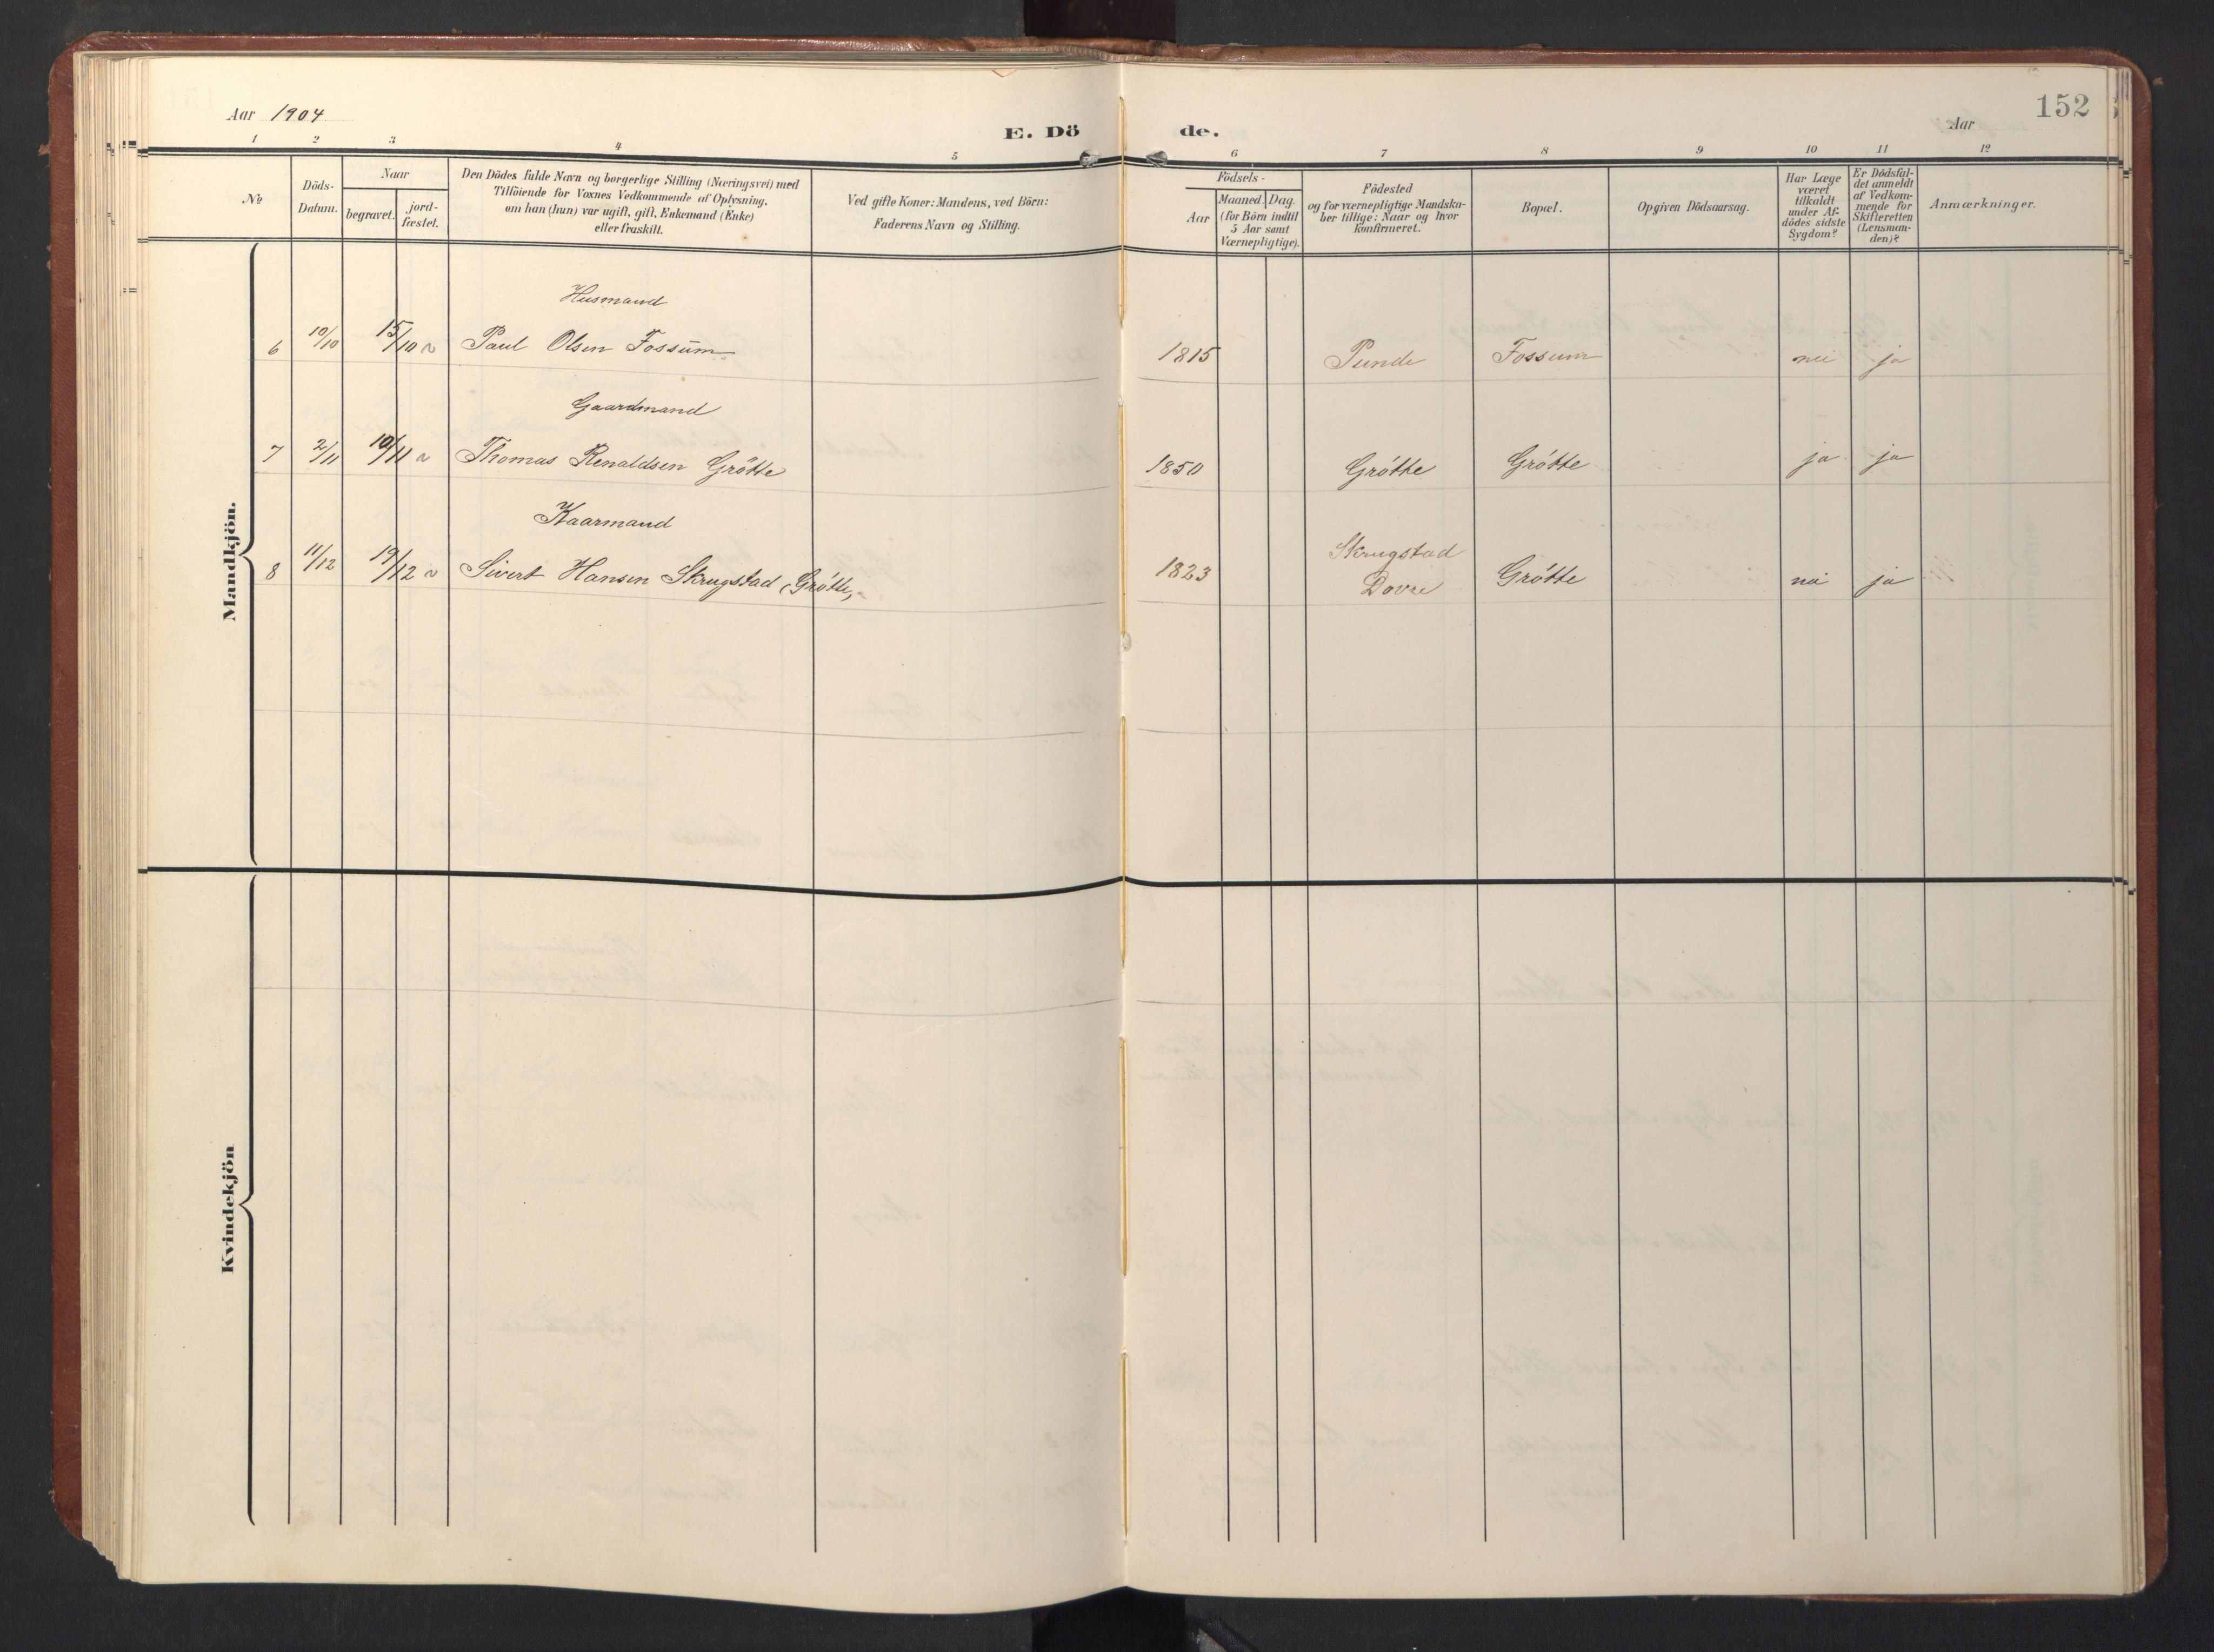 Aar 1904
E. Dö de.
Aar
152
1 2 3 4 5 6 7 8 9 10 11 12
No
Döds-
Datum.
Naar
begravet.
jord-
fæstet.
Den Dödes fulde Navn og borgerlige Stilling (Næringsvei) med
Tilföiende for Voxnes Vedkommende af Oplysning,
om han (hun) var ugift, gift, Enkemand (Enke)
eller fraskilt.
Ved gifte Koner: Mandens, ved Börn:
Faderens Navn og Stilling.
Födsels-
Aar
Maaned. Dag.
(for Börn indtil
5 Aar samt
Værnepligtige).
Födested
og for værnepligtige Mandska-
ber tillige: Naar og hvor
konfirmeret.
Bopæl.
Opgiven Dödsaarsag.
Har Læge
været
tilkaldt
under Af-
dödes sidste
Sygdom?
Er Dödsfal-
det anmeldt
af Vedkom-
mende for
Skifteretten
(Lensman-
den)?
Anmærkninger.
Mandkjön.
Husmand
6 10/10 15/10 Paul Olsen Fossum 1815 Punde Fossum nei ja
Gaardmand
7 2/11 10/11 Thomas Renaldsen Grötte 1850 Grötte Grötte ja ja
Kaarmand
8 11/12 19/12 Sivert Hansen Skrugstad (Grötte) 1823 Skrugstad Grötte nei ja
Dovre
Kvindekjön